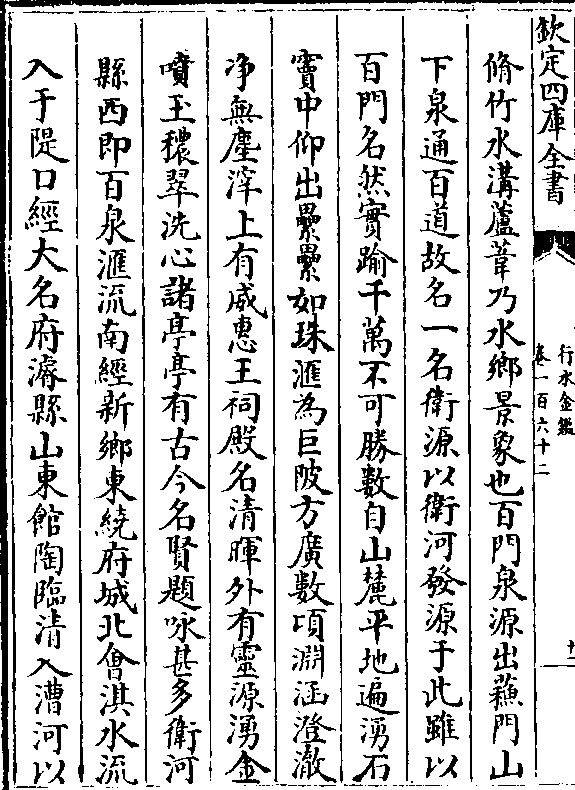 欽定四庫全書
行水金鑑
卷一百六十二
脩竹水溝蘆葦乃水鄉景象也百門泉源出蘓門山
下泉通百道故名一名衛源以衛河發源于此雖以
百門名然實踰千萬不可勝數自山麓平地遍湧石
竇中仰出纍纍如珠滙為巨陂方廣數項淵涵澄澈
净無塵滓上有威惠王祠殿名清暉外有靈源湧金
噴玉穠翠洗心諸亭亭有古今名賢題咏甚多衛河
縣西即百泉滙流南經新鄉東繞府城北會淇水流
入于隄口經大名府濬縣山東館陶臨清入漕河以